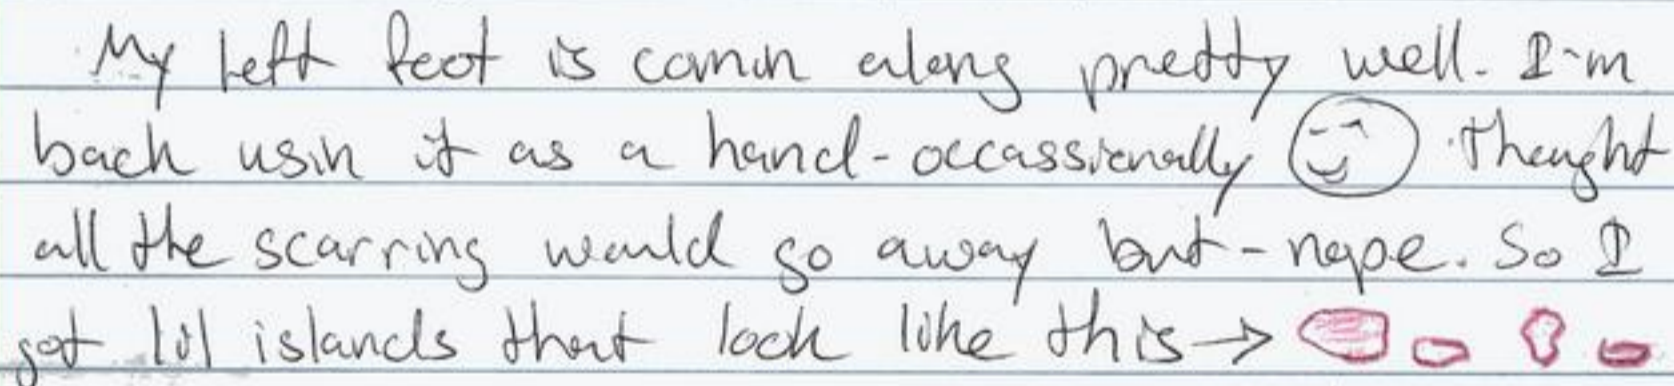 My left foot is comin along pretty well. I'm
back usin it as a hand-occassionally Thought
all the scarring would go away but-nope. So I
got lil islands that look like this→